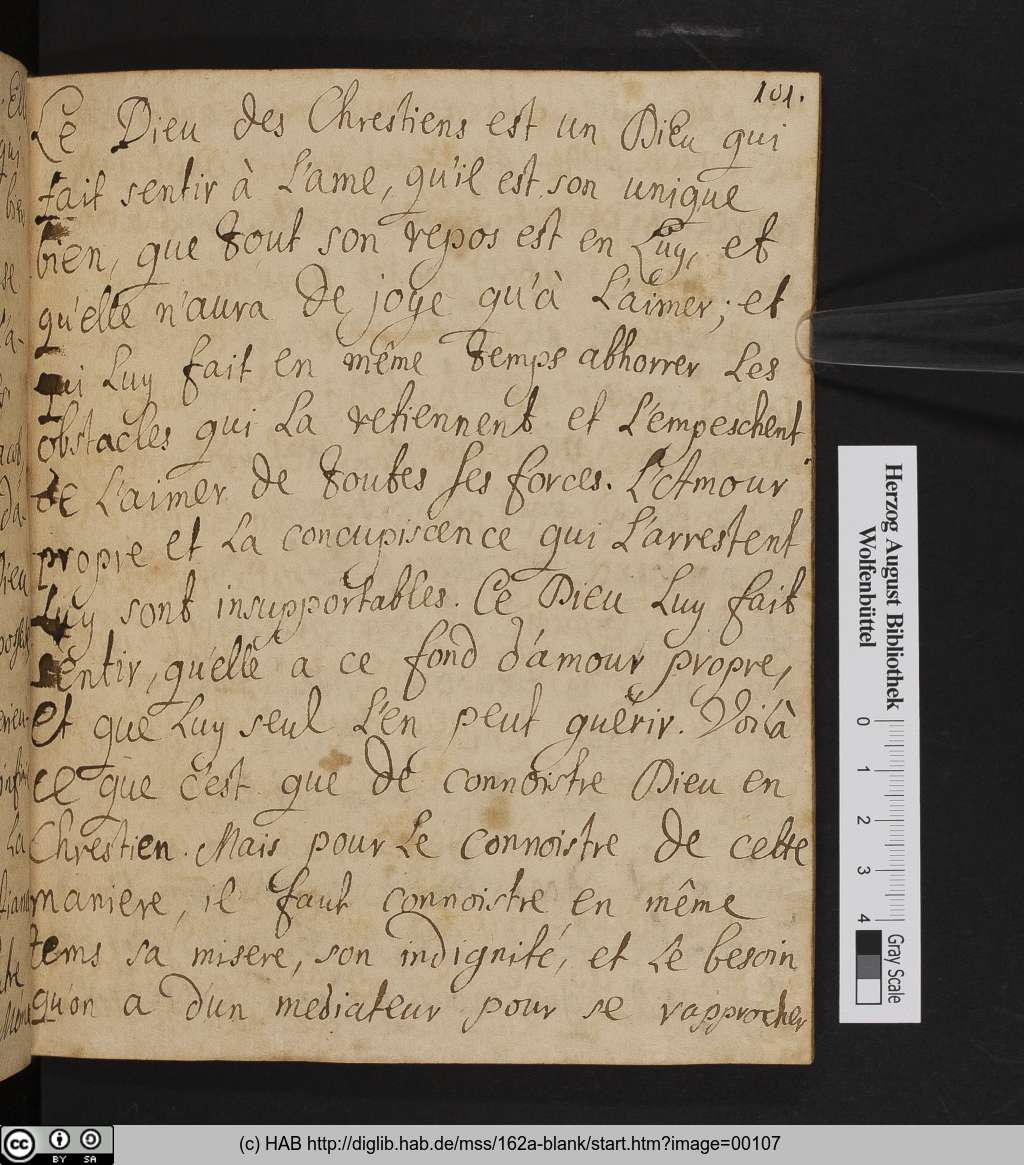 101.
Le Dieu des Chrestiens est un Dieu qui
fait sentir à L'ame, qu'il est son unique
bien, que tout son repos est en Luy, et
qu'elle n'aura de joye qu'à L'aimer; et
qui Luy fait en même temps abhorrer Les
obstacles qui La retiennent et L'empeschent
de L'aimer de toutes ses forces. L'Amour
propre et La concupiscence qui L'arrestent
Luy sont insupportables. Ce Dieu Luy fait
sentir, qu'elle a ce fond d'amour propre,
et que Luy seul L'en peut guérir. Voilà
ce que c'est que de connoistre Dieu en
Chrestien. Mais pour Le connoistre de cette
maniere, il faut connoistre en même
tems sa misere, son indignité, et Le besoin
qu'on a d'un mediateur pour se rapprocher
Herzog August Bibliothek
Wolfenbüttel
0 1 2 3 4
Gray Scale
cc BY SA
(c) HAB http://diglib.hab.de/mss/162a-blank/start.htm?image=00107